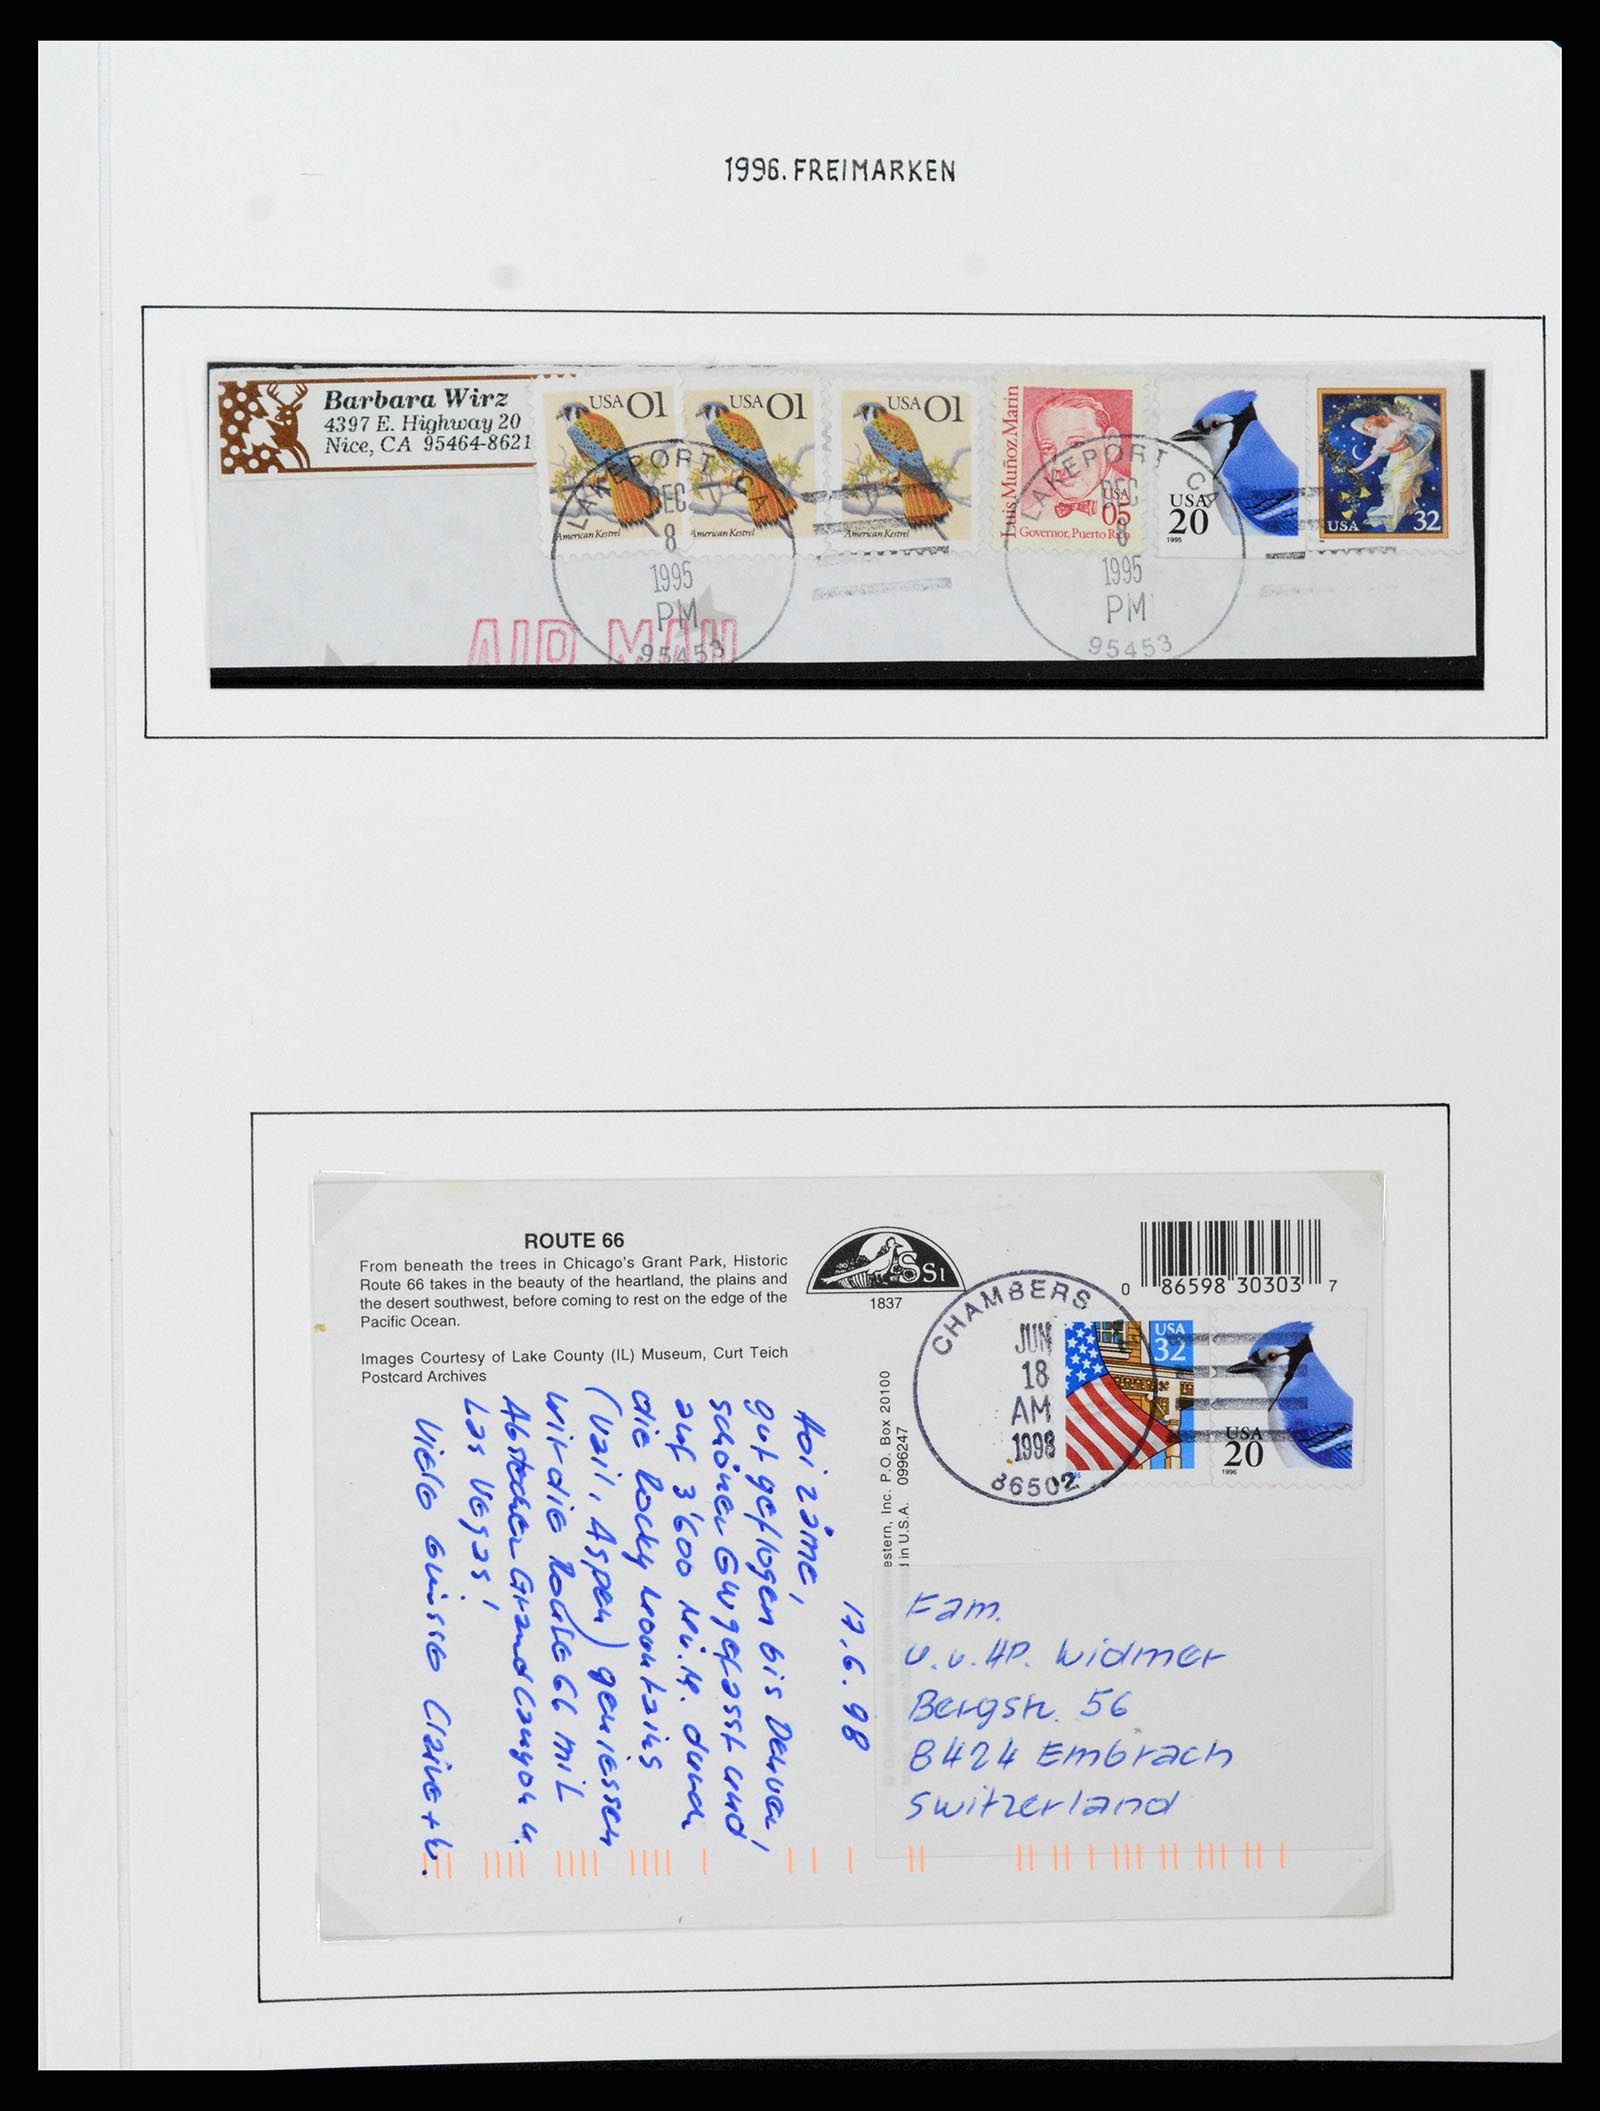 1996. FREIMARKEN
Barbara Wirz
4397 E. Highway 20
Nice, CA 95464-8621
USA 01
American Kestrel
USA 01
American Kestrel
USA 01
American Kestrel
Luis Muñoz Marin
USA
05
Governor, Puerto Rico
USA
20
1995
USA 32
LAKEPORT CA
DEC
8
1995
PM
95453
LAKEPORT CA
DEC
8
1995
PM
95453
AIR MAIL
ROUTE 66
From beneath the trees in Chicago's Grant Park, Historic
Route 66 takes in the beauty of the heartland, the plains and
the desert southwest, before coming to rest on the edge of the
Pacific Ocean.
Images Courtesy of Lake County (IL) Museum, Curt Teich
Postcard Archives
SSI
1837
0 86598 30303 7
CHAMBERS
JUN
18
AM
1998
86502
USA
32
USA
20
1996
estern, Inc. P.O. Box 20100
d in U.S.A. 0996247
17.6.98
Hoi zäme,
gut geflogen bis Denver,
schönes GWgefasst und
auf 3'600 M.ü.M. durch
die Rocky Mountains
(Vail, Aspen) geniessen
wir die Route 66 mit
Abstecher Grand Canyon u.
Las Vegas!
Viele Grüsse
Fam.
U. u. HP. Widmer
Bergstr. 56
8424 Embrach
Switzerland